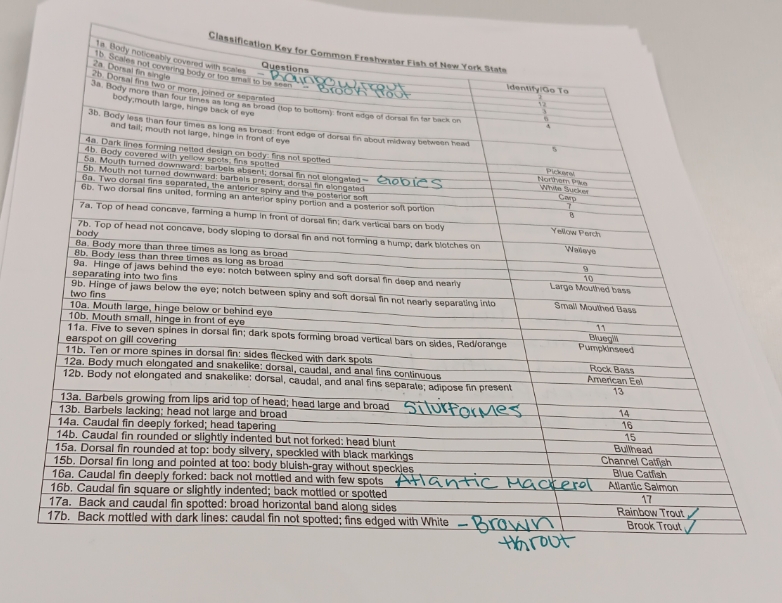 Classification Key for Common Freshwater Fish of New York State
Questions Identify/Go To
1a. Body noticeably covered with scales
1b. Scales not covering body or too small to be seen - Rainbow trout
2a. Dorsal fin single - Brook trout
12
2b. Dorsal fins two or more, joined or separated
3a. Body more than four times as long as broad (top to bottom): front edge of dorsal fin far back on
body;mouth large, hinge back of eye
3b. Body less than four times as long as broad: front edge of dorsal fin about midway between head 5
and tail; mouth not large, hinge in front of eye
4a. Dark lines forming netted design on body: fins not spotted Pickerel
4b. Body covered with yellow spots; fins spotted Northern Pike
5a. Mouth turned downward: barbels absent; dorsal fin not elongated - Gobies White Sucker
5b. Mouth not turned downward: barbels present; dorsal fin elongated Carp
6a. Two dorsal fins separated, the anterior spiny and the posterior soft 7
6b. Two dorsal fins united, forming an anterior spiny portion and a posterior soft portion 8
7a. Top of head concave, farming a hump in front of dorsal fin; dark vertical bars on body Yellow Perch
7b. Top of head not concave, body sloping to dorsal fin and not forming a hump; dark blotches on Walleye
body
8a. Body more than three times as long as broad 9
8b. Body less than three times as long as broad 10
9a. Hinge of jaws behind the eye: notch between spiny and soft dorsal fin deep and nearly Large Mouthed bass
separating into two fins
9b. Hinge of jaws below the eye; notch between spiny and soft dorsal fin not nearly separating into Small Mouthed Bass
two fins
10a. Mouth large, hinge below or behind eye 11
10b. Mouth small, hinge in front of eye Bluegill
11a. Five to seven spines in dorsal fin; dark spots forming broad vertical bars on sides, Red/orange Pumpkinseed
earspot on gill covering
11b. Ten or more spines in dorsal fin: sides flecked with dark spots Rock Bass
12a. Body much elongated and snakelike: dorsal, caudal, and anal fins continuous American Eel
12b. Body not elongated and snakelike: dorsal, caudal, and anal fins separate; adipose fin present 13
13a. Barbels growing from lips and top of head; head large and broad Silurformes 14
13b. Barbels lacking; head not large and broad 16
14a. Caudal fin deeply forked; head tapering 15
14b. Caudal fin rounded or slightly indented but not forked: head blunt Bullhead
15a. Dorsal fin rounded at top: body silvery, speckled with black markings Channel Catfish
15b. Dorsal fin long and pointed at too: body bluish-gray without speckles Blue Catfish
16a. Caudal fin deeply forked: back not mottled and with few spots Atlantic Mackerel Atlantic Salmon
16b. Caudal fin square or slightly indented; back mottled or spotted 17
17a. Back and caudal fin spotted: broad horizontal band along sides Rainbow Trout ✓
17b. Back mottled with dark lines: caudal fin not spotted; fins edged with White - Brown Brook Trout ✓
throut